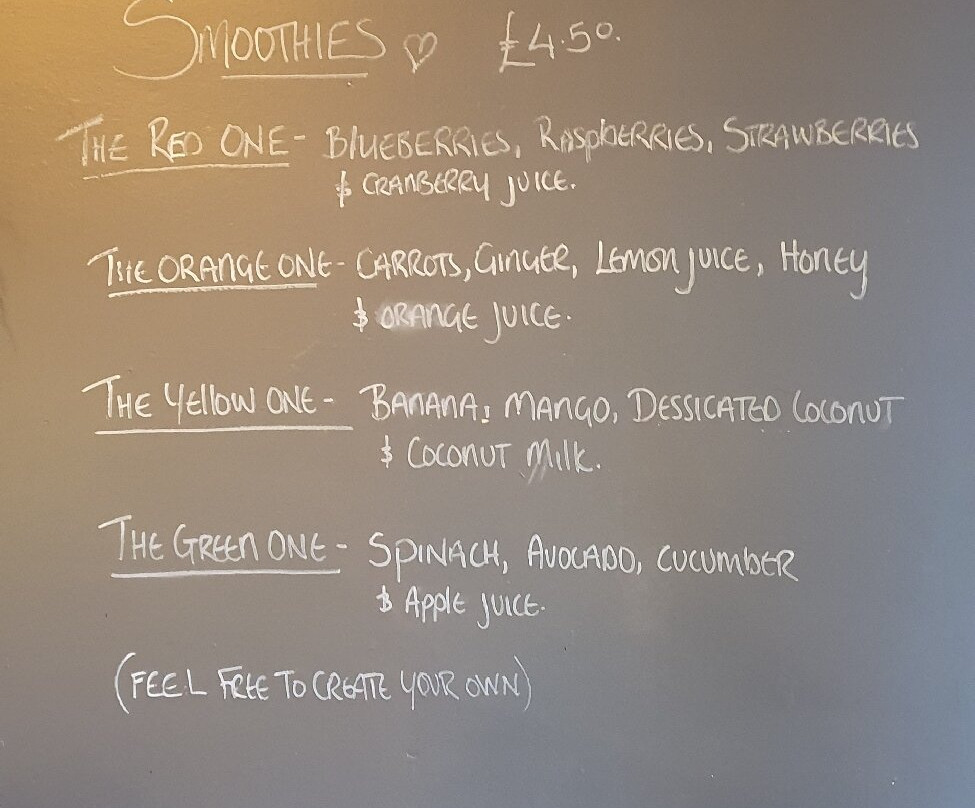 SMOOTHIES ♡ £4.50.
THE RED ONE - BLUEBERRIES, RASPBERRIES, STRAWBERRIES
& CRANBERRY JUICE.
THE ORANGE ONE - CARROTS, GINGER, LEMON JUICE, HONEY
& ORANGE JUICE.
THE YELLOW ONE - BANANA, MANGO, DESSICATED COCONUT
& COCONUT MILK.
THE GREEN ONE - SPINACH, AVOCADO, CUCUMBER
& APPLE JUICE.
(FEEL FREE TO CREATE YOUR OWN)